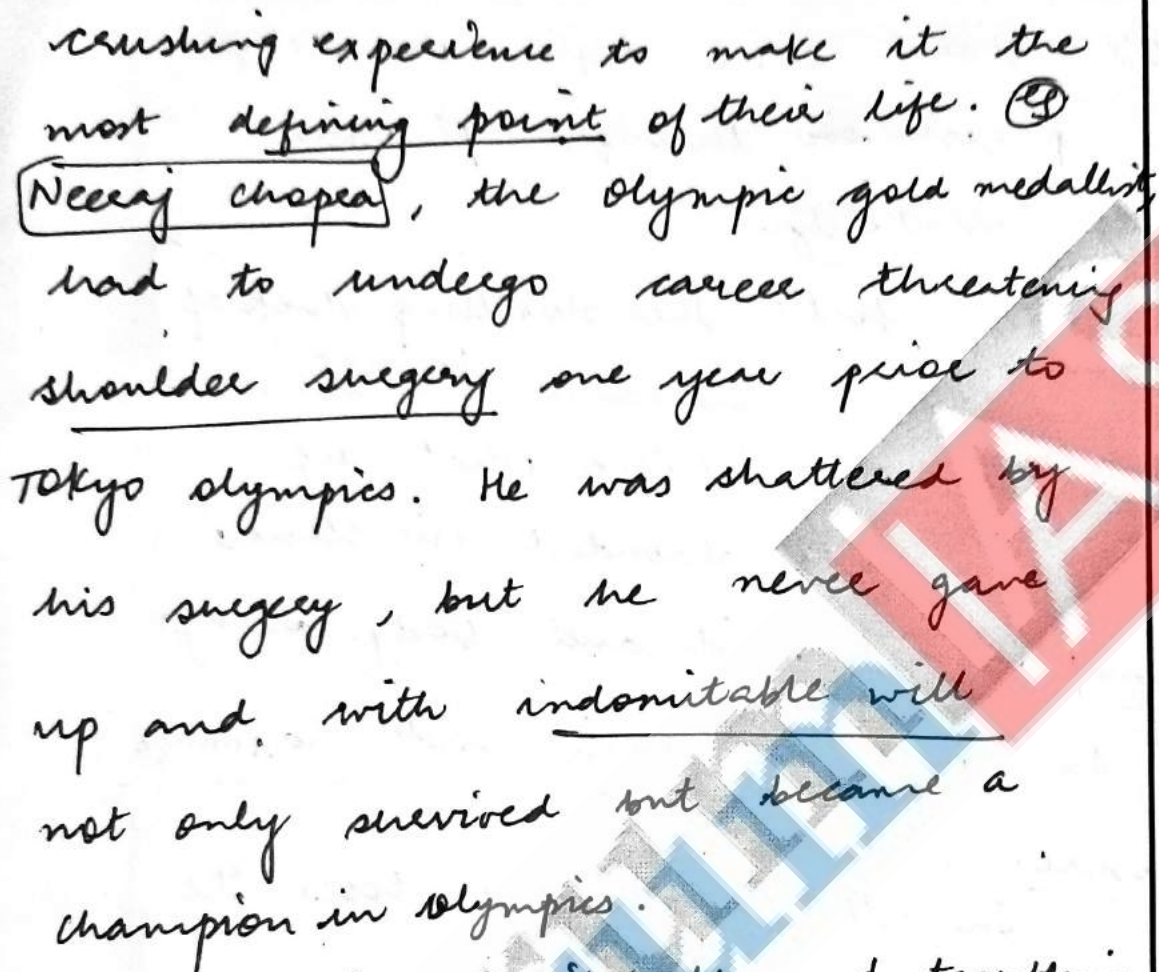 crushing experience to make it the
most defining point of their life. eg
Neeraj Chopra, the Olympic gold medallist,
had to undergo career threatening
shoulder surgery one year prior to
Tokyo Olympics. He was shattered by
his surgery, but he never gave
up and with indomitable will
not only survived but became a
champion in Olympics.
IAS